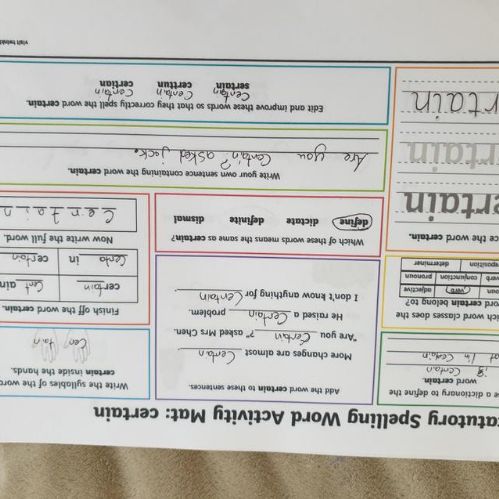 tatutory Spelling Word Activity Mat: certain
e a dictionary to define the
word certain.
is Certain
Add the word certain to these sentences.
More changes are almost Certan
"Are you Certain?" asked Mrs Chen.
He raised a Certain problem.
I don't know anything for Certain
Write the syllables of the word
certain inside the hands.
Cer tain
hich word classes does the
ord certain belong to?
oun verb adjective
verb conjunction pronoun
eposition determiner
Which of these words means the same as certain?
define dictate definite dismal
Finish off the word certain.
certain
Now write the full word.
Certain
ce the word certain.
ertain
rtain
rtain
Write your own sentence containing the word certain.
Are you Certain? asked jack.
Edit and improve these words so that they correctly spell the word certain.
sertain certtun certian
Certain Certain Certain